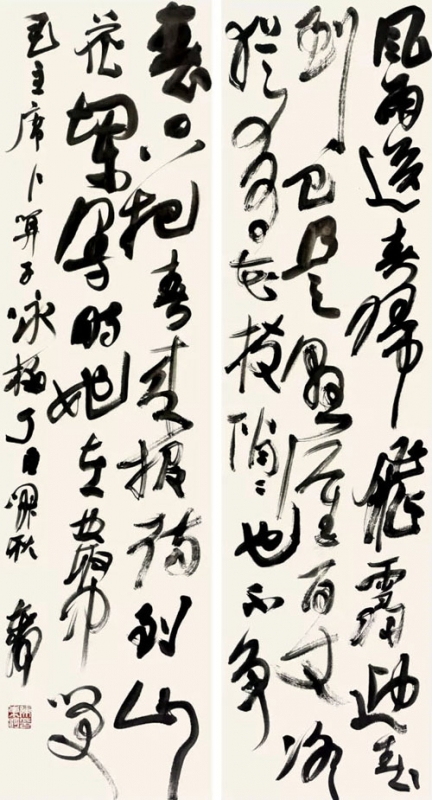 風雨送春歸飛雪迎春
到已是懸崖百丈冰
猶有花枝俏〻也不争
春只把春来报待到山
花爛漫時她在叢中笑
毛主席卜算子咏梅丁秋